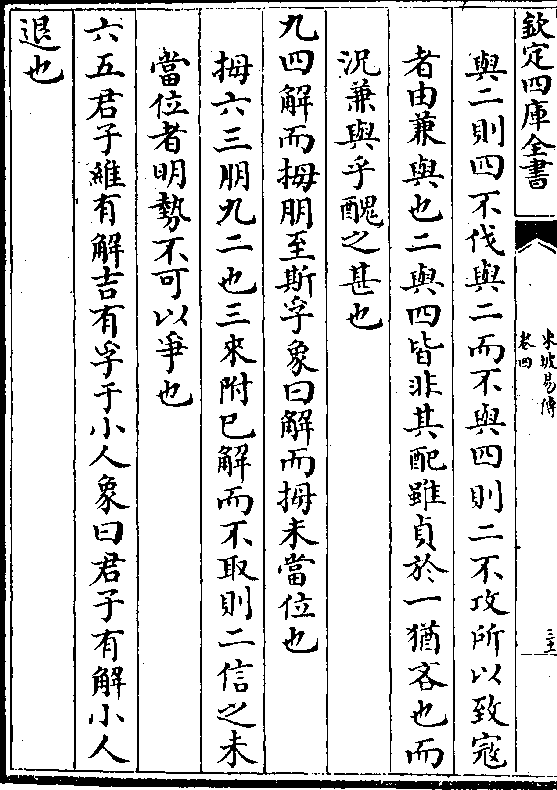 欽定四庫全書
東坡易傳
卷四
與二則四不伐與二而不與四則二不攻所以致寇
者由兼與也二與四皆非其配雖貞於一猶吝也而
況兼與乎醜之甚也
九四解而拇朋至斯孚象曰解而拇未當位也
拇六三朋九二也三來附已解而不取則二信之未
當位者明勢不可以爭也
六五君子維有解吉有孚于小人象曰君子有解小人
退也